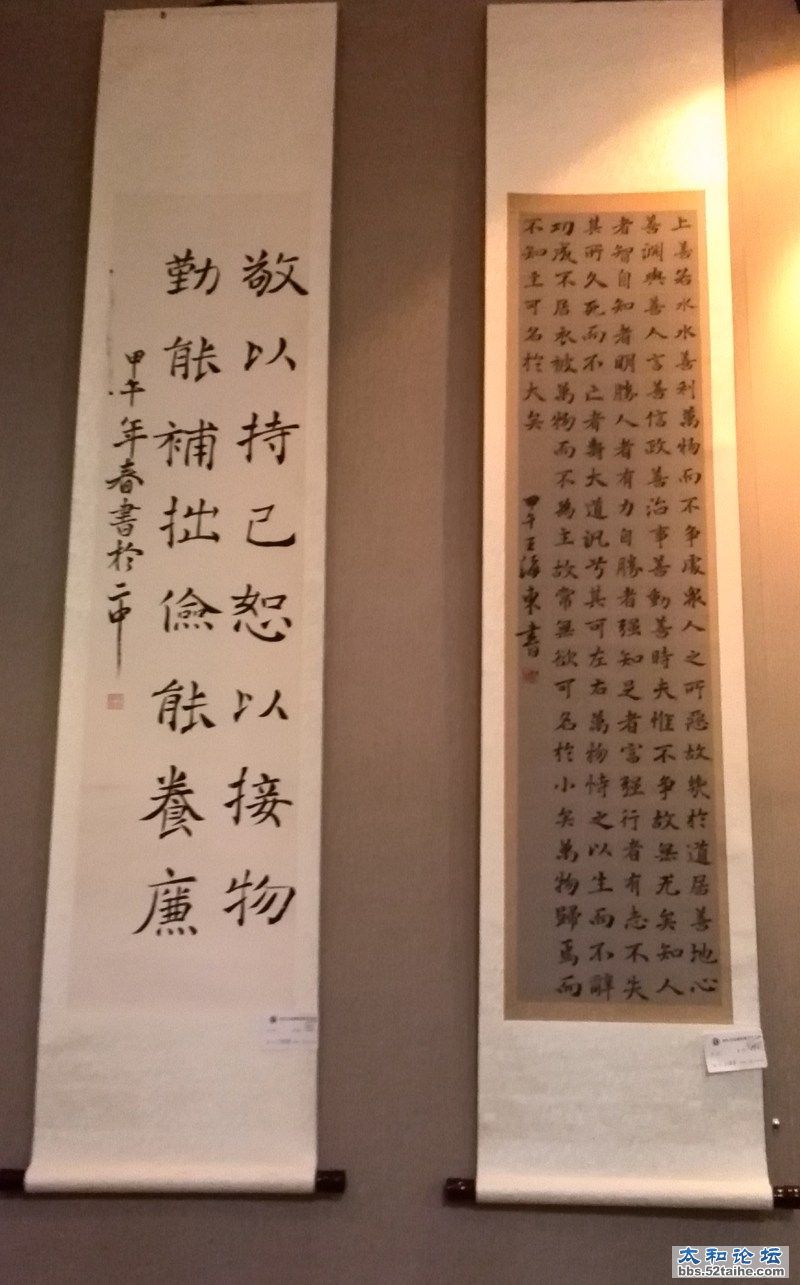 敬以持己恕以接物
勤能補拙儉能養廉
甲午年春書於二中
上善若水水善利萬物而不争處衆人之所惡故幾於道居善地心
善淵與善人言善信政善治事善動善時夫惟不争故無尤矣知人
者智自知者明勝人者有力自勝者强知足者富强行者有志不失
其所久死而不亡者壽大道汎兮其可左右萬物恃之以生而不辭
功成不居衣被萬物而不為主故常無欲可名於小矣萬物歸焉而
不知主可名於大矣
甲午王海東書
太和论坛
bbs.52taihe.com